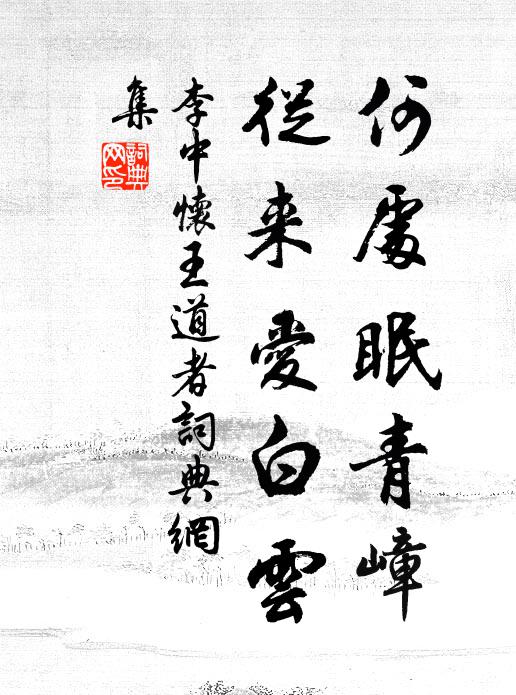 何處眠青嶂
從来愛白雲
李中懷王道者詞典網
集
詞典
网印